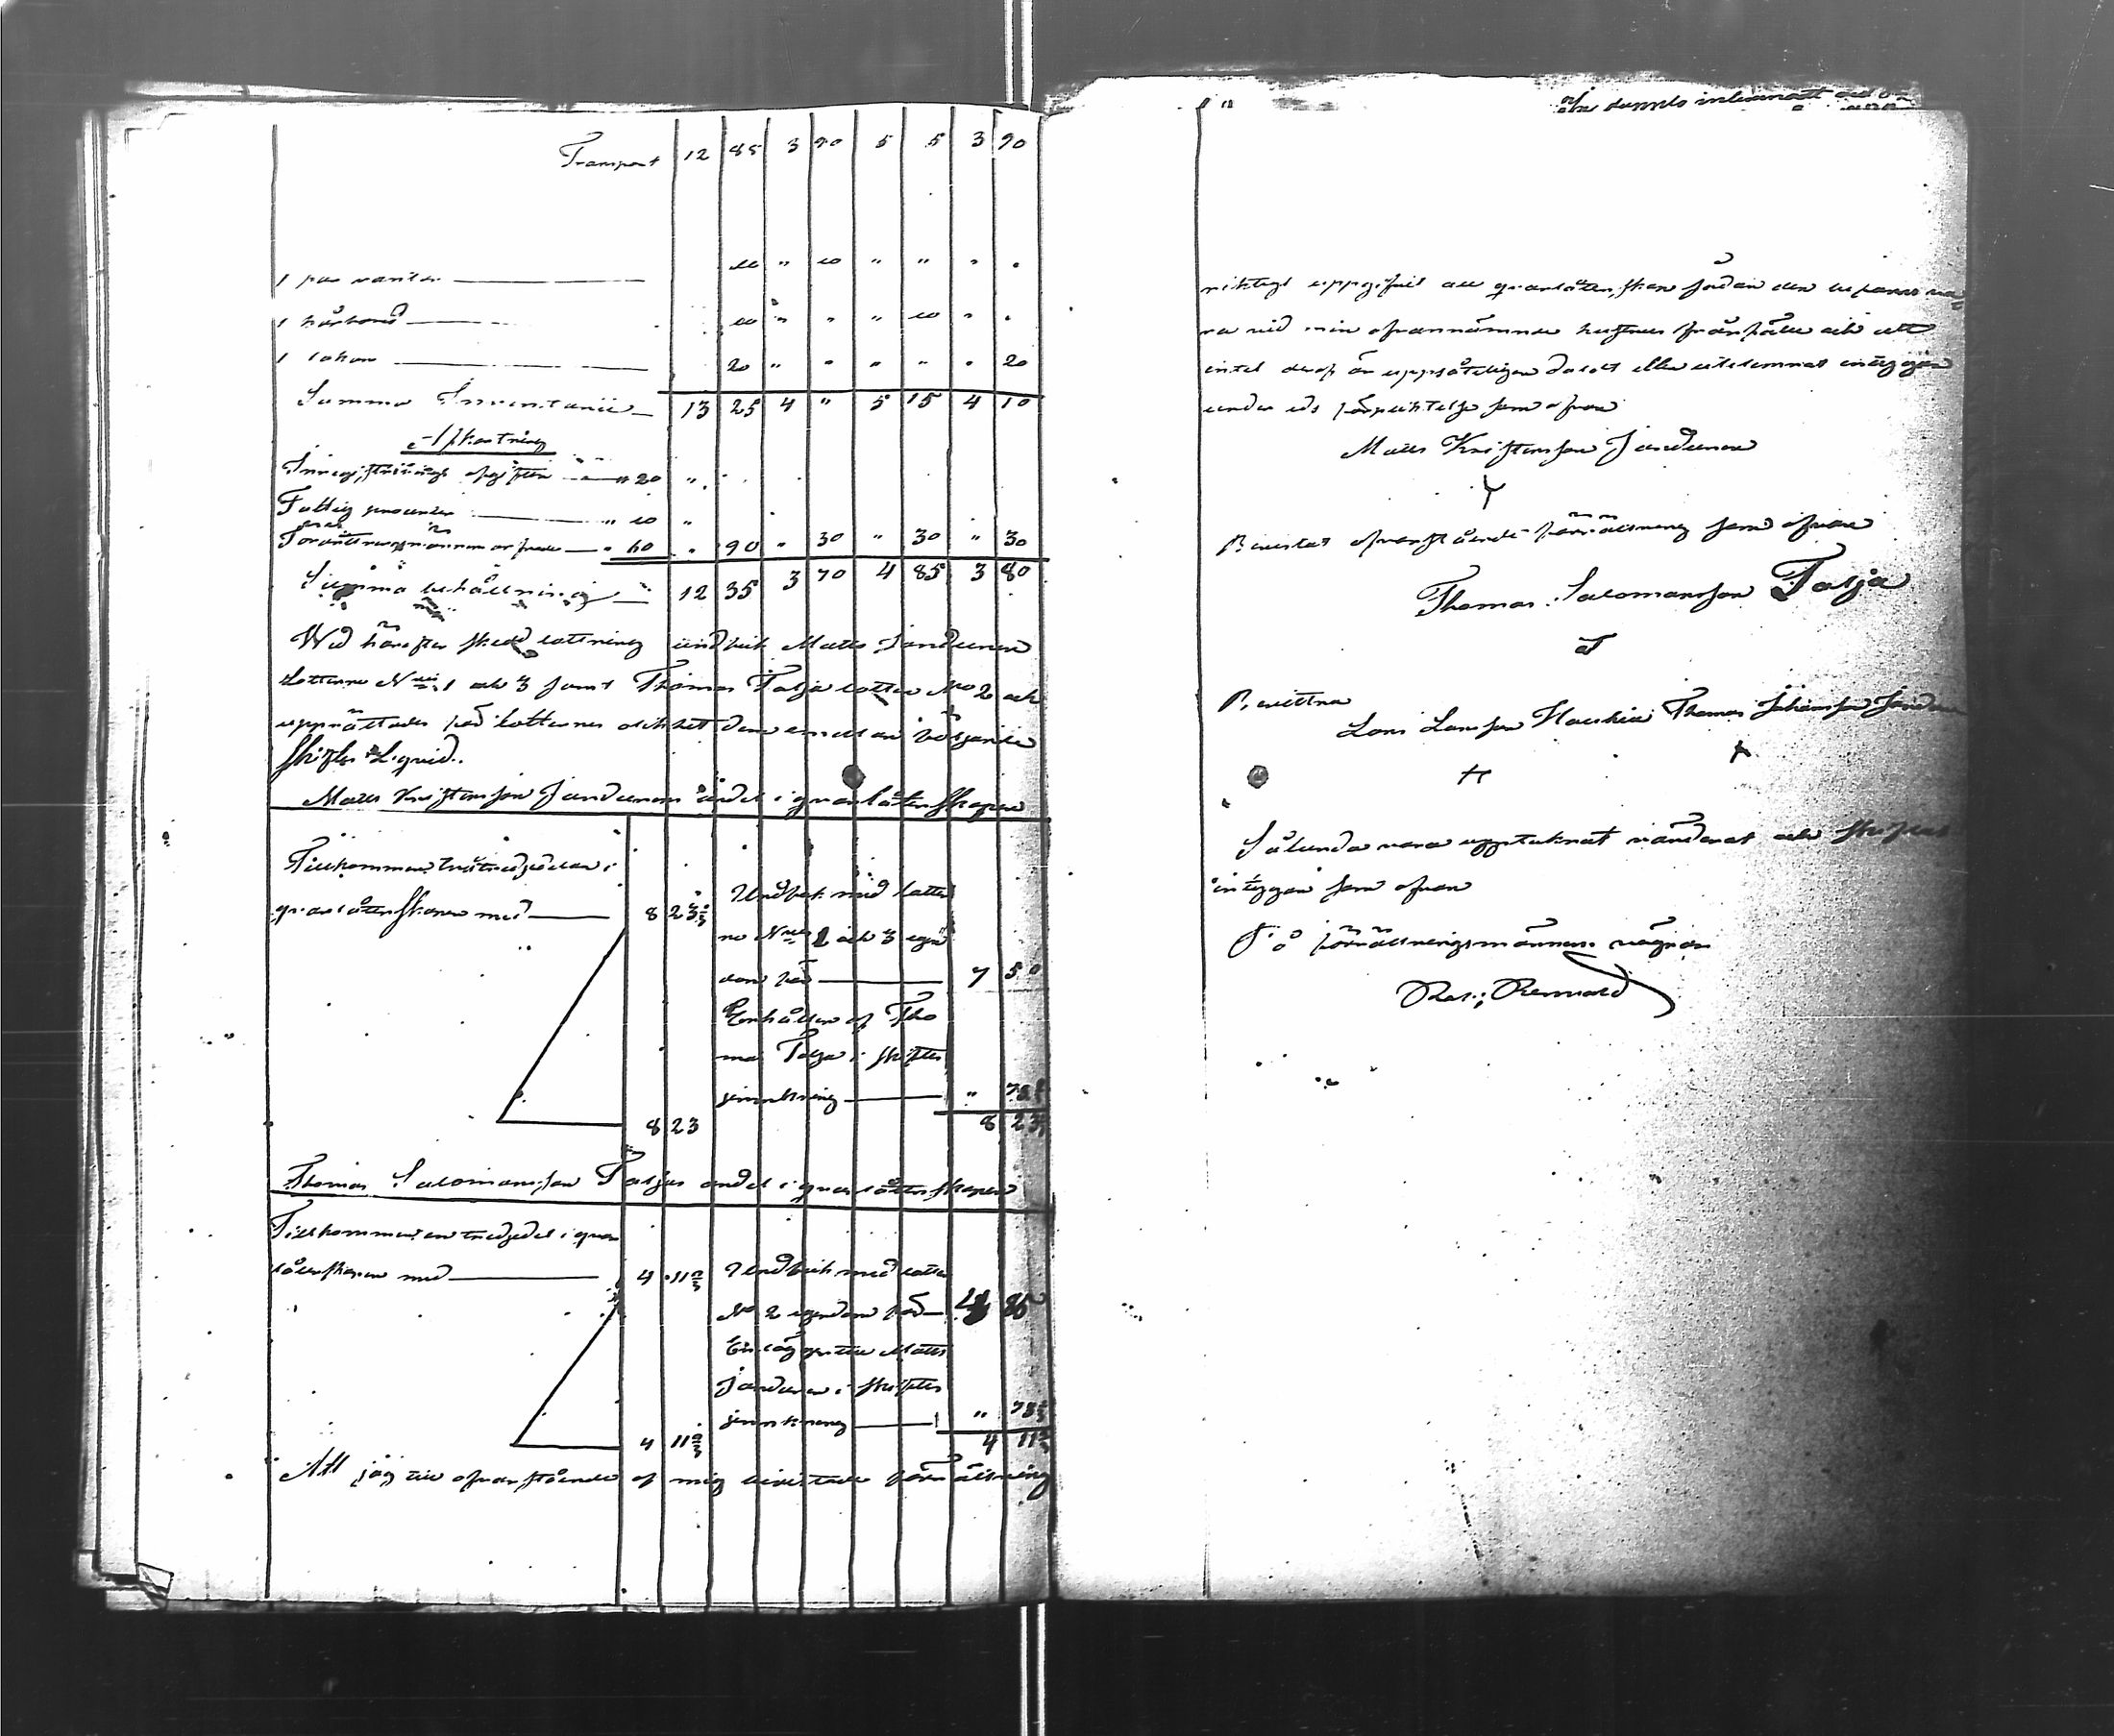 Transport 12 85 3 90 5 5 3 90
1 par vantar 10 " 10 " " " "
1 hårbord 10 " " " 10 " "
1 lakan 20 " " " " " 20
Summa Inventarii 13 25 4 " 5 15 4 10
Afkortning
Inregistrerings afgiften " 20 "
Fattig procenten " 10 "
Förrättningsmännen arfvode " 60 " 90 " 30 " 30 " 30
Summa behållning 12 35 3 70 4 85 3 80
Wid härefter skedd lottning undfick Matts Jandunen
Lotterne N:ris 1 och 3 samt Thomas Talja lotten N:o 2 och
upprättades på lotternes olikhet dem emellan följande
skiftes Liqvid.
Matts Kristersson Jandunens andel i qvarlåtenskapen
Tillkommer tvåtredjedelar i
qvarlåtenskapen med 8 23 1/3
Undfick med lotter
ne N:ris 1 och 3 egen
dom för 7 50
Erhåller af Tho
mas Talja i skiftes
jemnkning " 73 1/3
8 23
8 23 1/3
Thomas Salomonsson Taljas andel i qvarlåtenskapen
Tillkommer en tredjedel i qvar
låtenskapen med 4 11 2/3
Undfick med lotten
N:o 2 egendom för 4 85
Erlägger till Matts
Jandunen i skiftes
jemnkning " 73 1/3
4 11 2/3
4 11 2/3
Att jag till ofvanstående af mig bivistade förrättning
riktigt uppgifvit all qvarlåtenskapen sådan den befanns va
ra vid min ofvannämnde hustrus frånfälle och att
intet deraf är uppsåteligen doldt eller utelemnat intygar
under eds förpliktelse som ofvan
Matts Kristersson Jandunen
Bevistat ofvanstående förrättning som ofvan
Thomas Salomonsson Talja
Bevittna
Lars Larsson Haukia Thomas Johansson Jandunen
Sålunda vara upptecknat värderat och skiftat
intygar som ofvan
På förrättningsmännens vägnar
Renvald